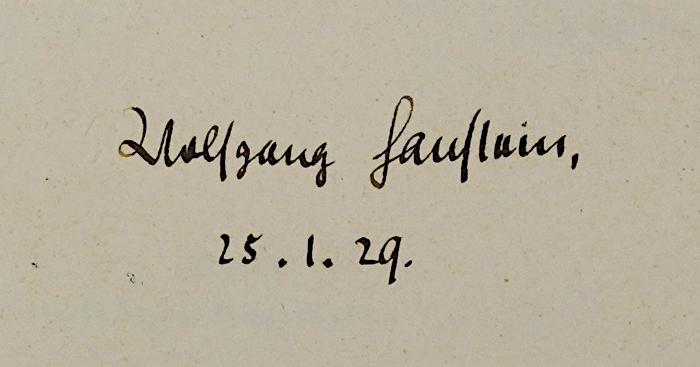 Wolfgang Hanstein,
25.1.29.